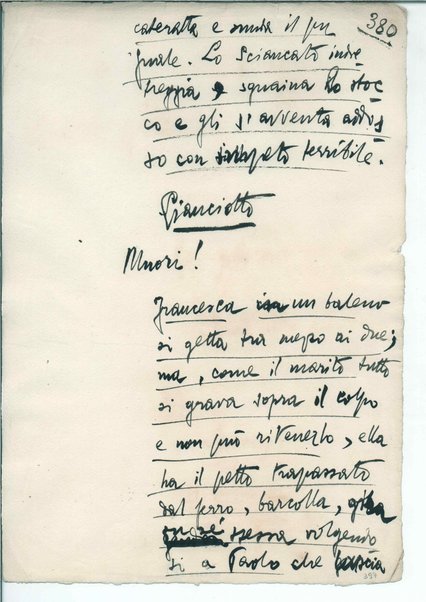 380
cateratta e snuda il pu
gnale. Lo Sciancato indie
treggia e sguaina lo stoc
co e gli s'avventa addos
so con impeto terribile.
Gianciotto
Muori!
Francesca in un baleno
si getta tra mezzo ai due;
ma, come il marito tutto
si grava sopra il colpo
e non può ritenerlo, ella
ha il petto trapassato
dal ferro, barcolla, gira
su sé stessa volgendo
si a Paolo che lascia
397